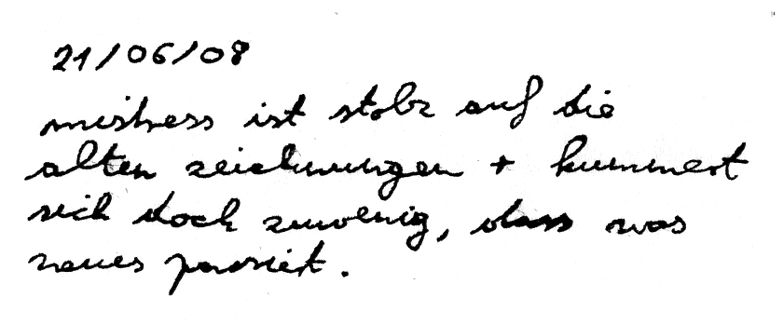 21/06/08
mistress ist stolz auf die
alten zeichnungen + kummert
sich doch zuwenig, dass was
neues passiert.